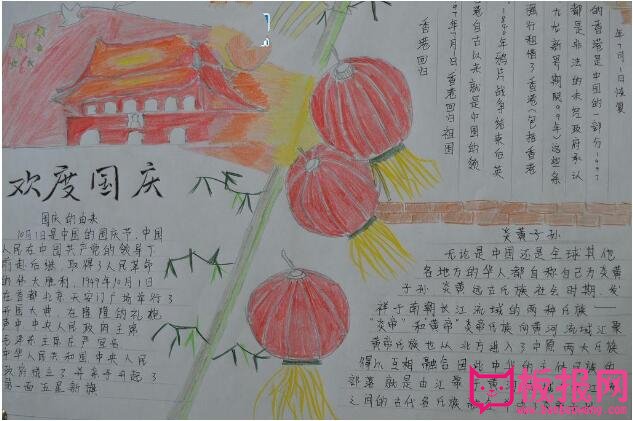 欢度国庆
国庆的由来
10月1日是中国的国庆节,中国
人民在中国共产党的领导下
前赴后继,取得了人民革命
的伟大胜利,1949年10月1日
在首都北京天安门广场举行了
开国大典,在隆隆的礼炮
声中中央人民政府主席
毛泽东主席庄严宣告
中华人民共和国中央人民
政府成立了并亲手升起了
第一面五星新旗
香港回归
年7月1日香港回归祖国
香港自古以来就是中国的领
鸦片战争结束后英
强行租借了香港(包括香港
九龙新界期限99年)这些条
都是非法的未经政府承认
的香港是中国的一部分1997
年7月1日恢复
炎黄子孙
无论是中国还是全球其他
各地方的华人都自称自己为炎黄
子孙 炎黄远古氏族社会时期,发
祥于南朝长江流域的两种氏族——
“炎帝”和黄帝”炎帝氏族向黄河流域汇聚
黄帝氏族也从北方进入了中原 两大氏族
得以互相融合因此
部落就是由江
之间的古代各氏族
板报网